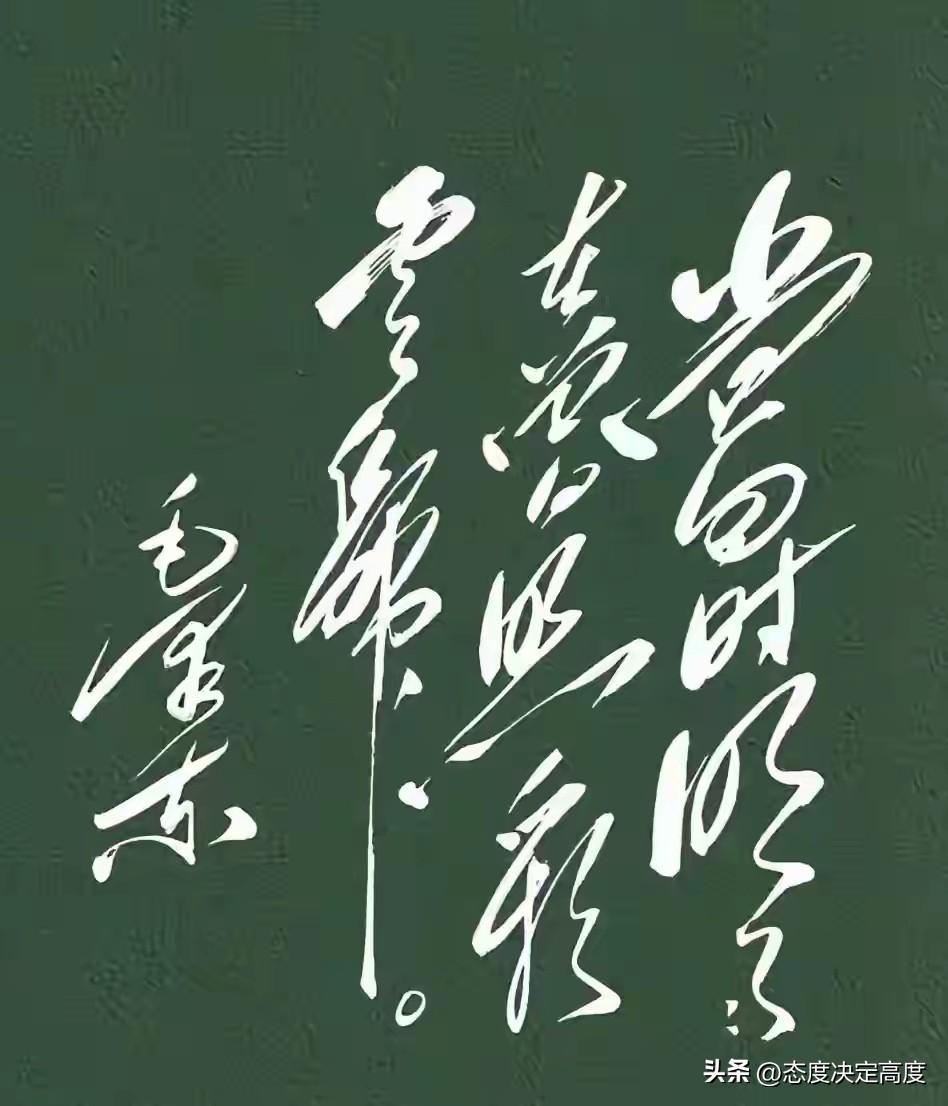 當时明月
在曾照彩
雲歸。
毛泽东
头条 @态度决定高度